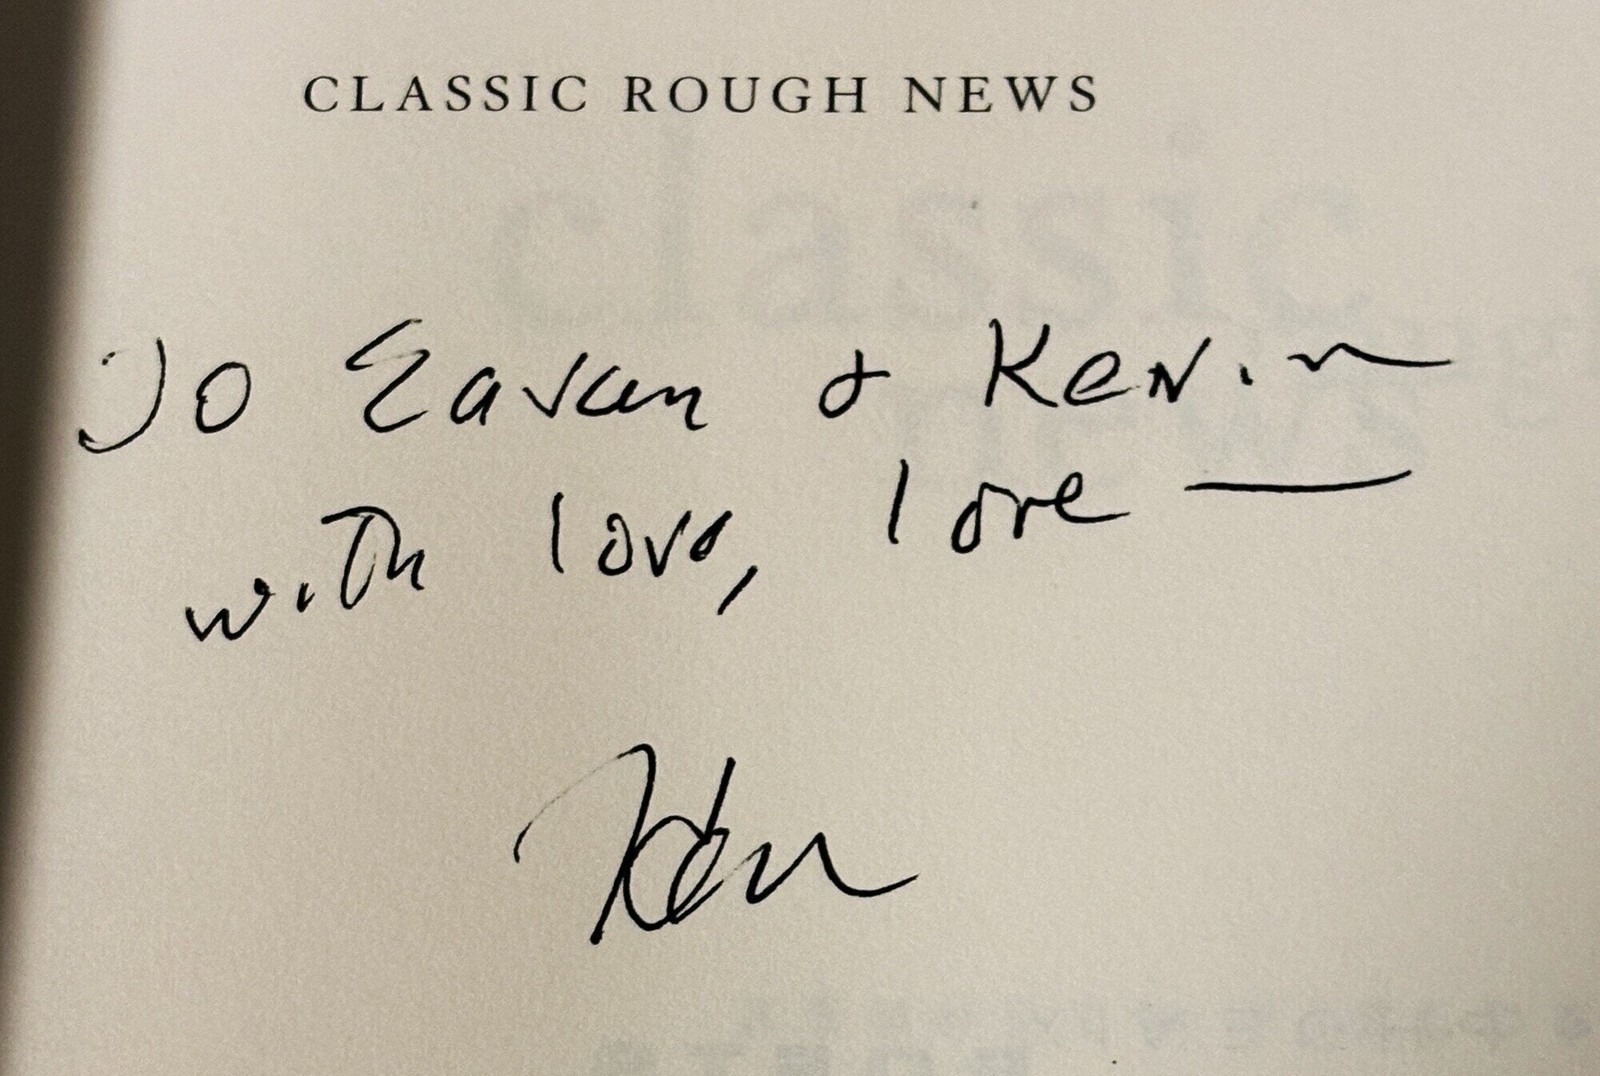 CLASSIC ROUGH NEWS
To Eavan & Kevin
with love, love —
Ken